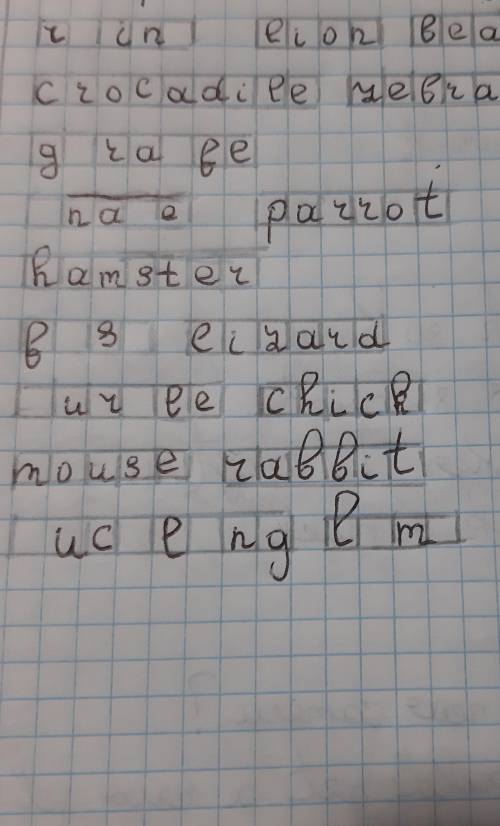 r in lion bea
crocadile zebra
g ra fe
na e parrot
hamster
f s lizard
ur le chick
mouse rabbit
uc l ng l m